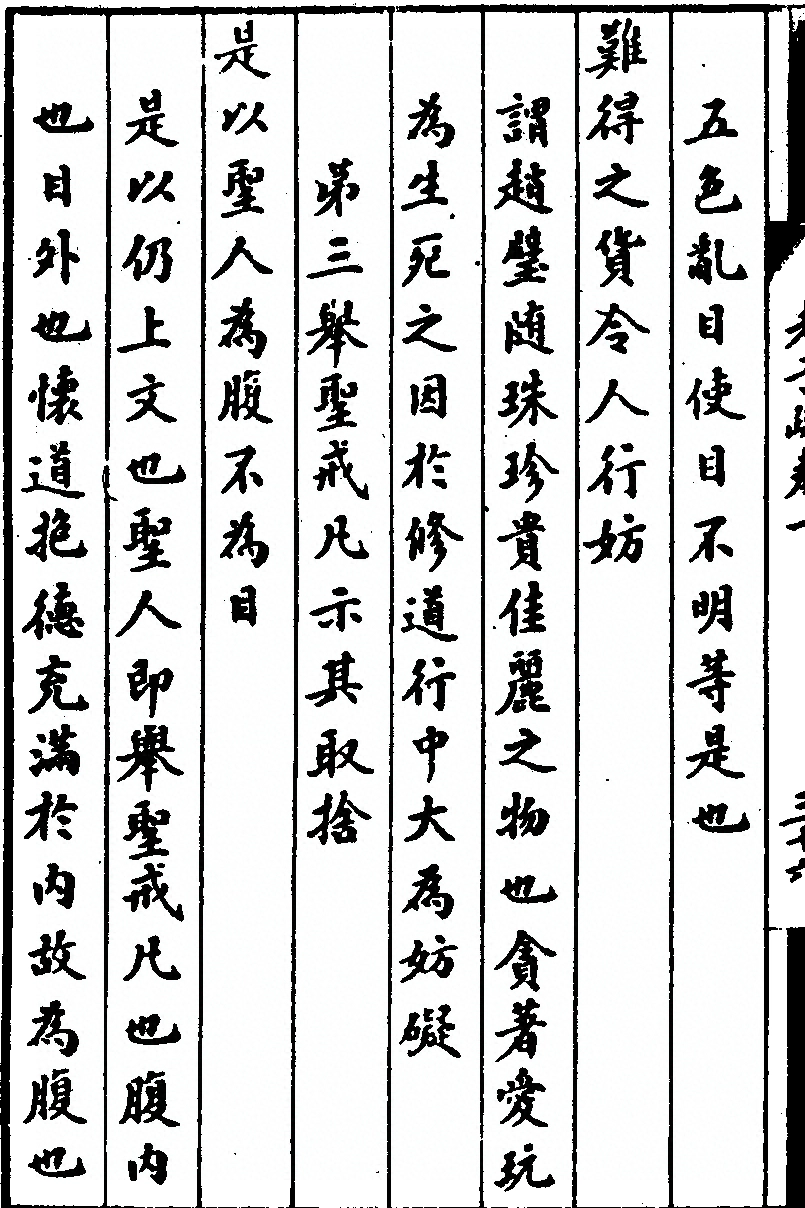 五色亂目使目不明等是也
難得之貨令人行妨
謂趙璧随珠珍貴佳麗之物也貪著愛玩
為生死之因於修道行中大為妨礙
第三舉聖戒凡示其取捨
是以聖人為腹不為目
是以仍上文也聖人即舉聖戒凡也腹内
也目外也懷道抱德充滿於内故為腹也